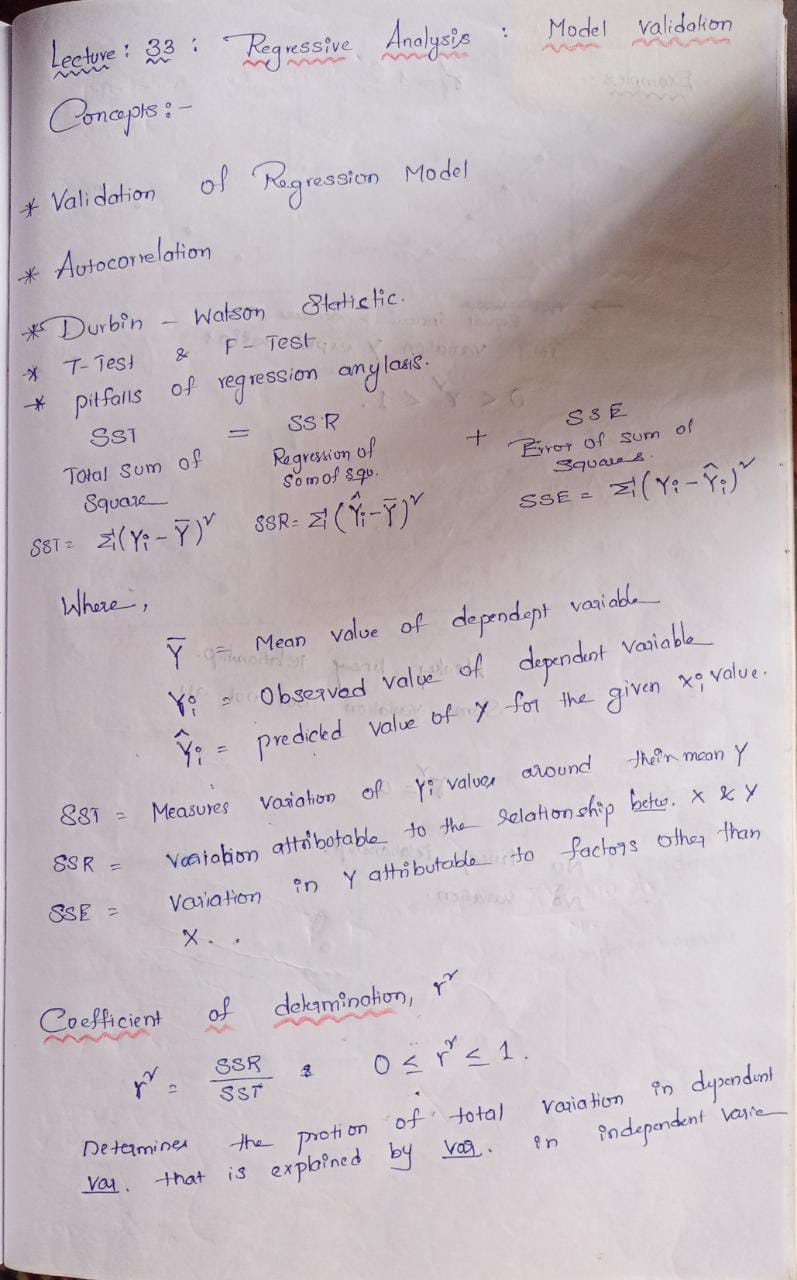 Lecture : 33 : Regressive Analysis : Model Validation
Concepts :-
* Validation of Regression Model
* Autocorrelation
* Durbin - Watson Statistic.
* T-Test & F-Test
* pitfalls of regression anylasis.
SST = SSR + SSE
Total sum of Square
Regression of Som of Squ.
Error of sum of Squares.
SST = Σ(Yi - Ȳ)² SSR = Σ(Ŷi - Ȳ)² SSE = Σ(Yi - Ŷi)²
Where,
Ȳ = Mean value of dependept variable
Yi = Observed value of dependent variable
Ŷi = predicted value of Y for the given xi value.
SST = Measures variation of Yi values around their mean Y
SSR = variation attributable to the relationship betw. X & Y
SSE = Variation in Y attributable to factors other than
X.
Coefficient of determination, r²
r² = SSR / SST & 0 ≤ r² ≤ 1.
Determines the protion of total variation in dependent
var. that is explained by var. in independent varia